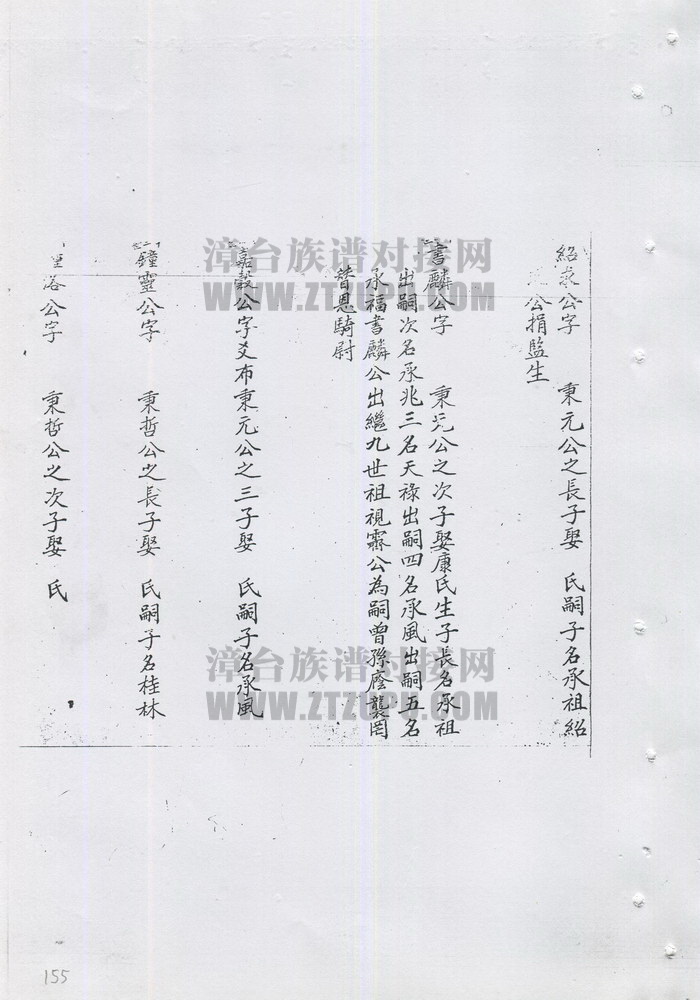 公字　秉元公之長子娶　氏嗣子名承祖紹
公捐監生
書麟公字　秉元公之次子娶康氏生子長名承祖
出嗣次名承兆三名天祿出嗣四名承風出嗣五名
承福書麟公出繼九世祖視霖公為嗣曾孫廕襲罔
替恩騎尉
嘉穀公字爻布秉元公之三子娶　氏嗣子名承風
鐘靈公字　秉哲公之長子娶　氏嗣子名桂林
公字　秉哲公之次子娶　氏
漳台族谱对接网
WWW.ZTZUPU.COM
漳台族谱对接网
WWW.ZTZUPU.COM
155